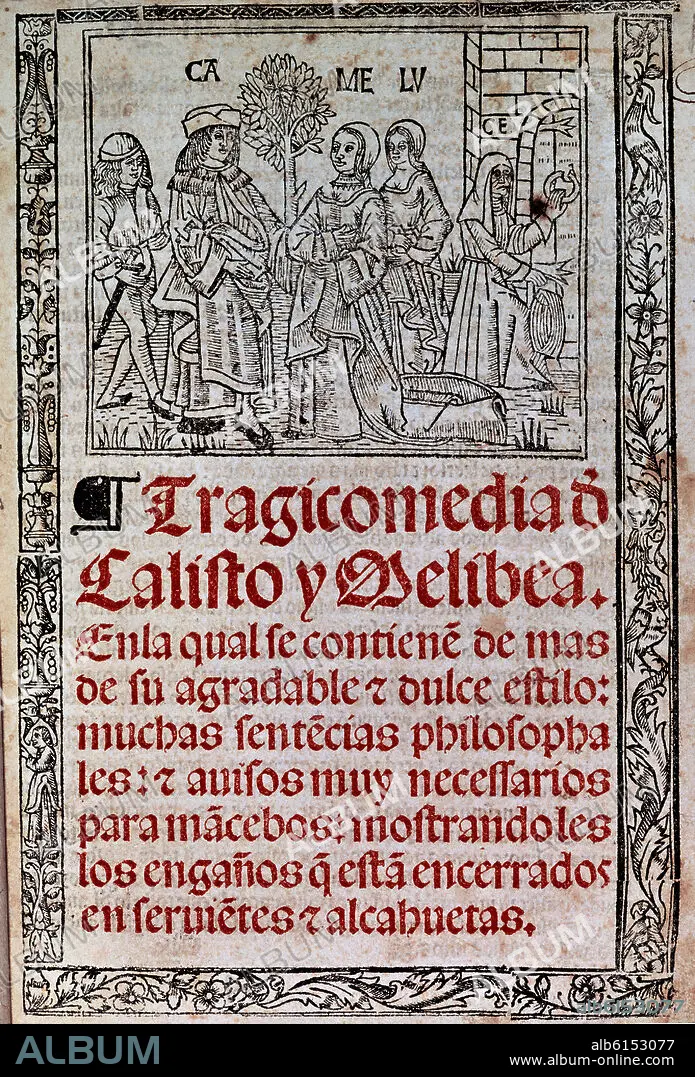 CA
ME LV
CE
¶ Tragicomedia đ
Calisto y Melibea.
Enla qual se contienẽ de mas
de su agradable ⁊ dulce estilo:
muchas sentẽcias philosopha
les: ⁊ auisos muy necessarios
para mãcebos: mostrandoles
los engaños q̃ estã encerrados
en seruiẽtes ⁊ alcahuetas.
ALBUM
alb6153077
www.album-online.com